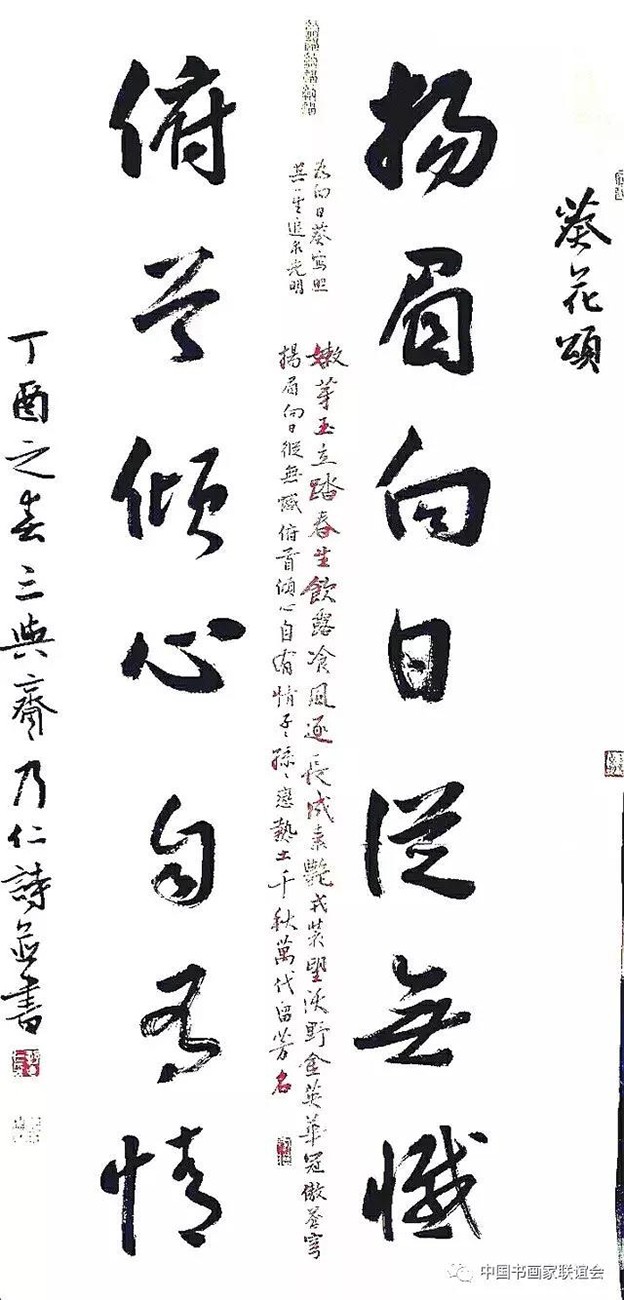 葵花頌
揚眉向日從無懺
為向日葵寫照
其一生追求光明
嫩芽玉立踏春生飲露飡風逐長成素艷戎裝望沃野金英華冠傲蒼穹
揚眉向日從無懺俯首傾心自有情子々孫々戀熱土千秋萬代留芳名
俯首傾心自有情
丁酉之春三與齋乃仁詩並書
中国书画家联谊会